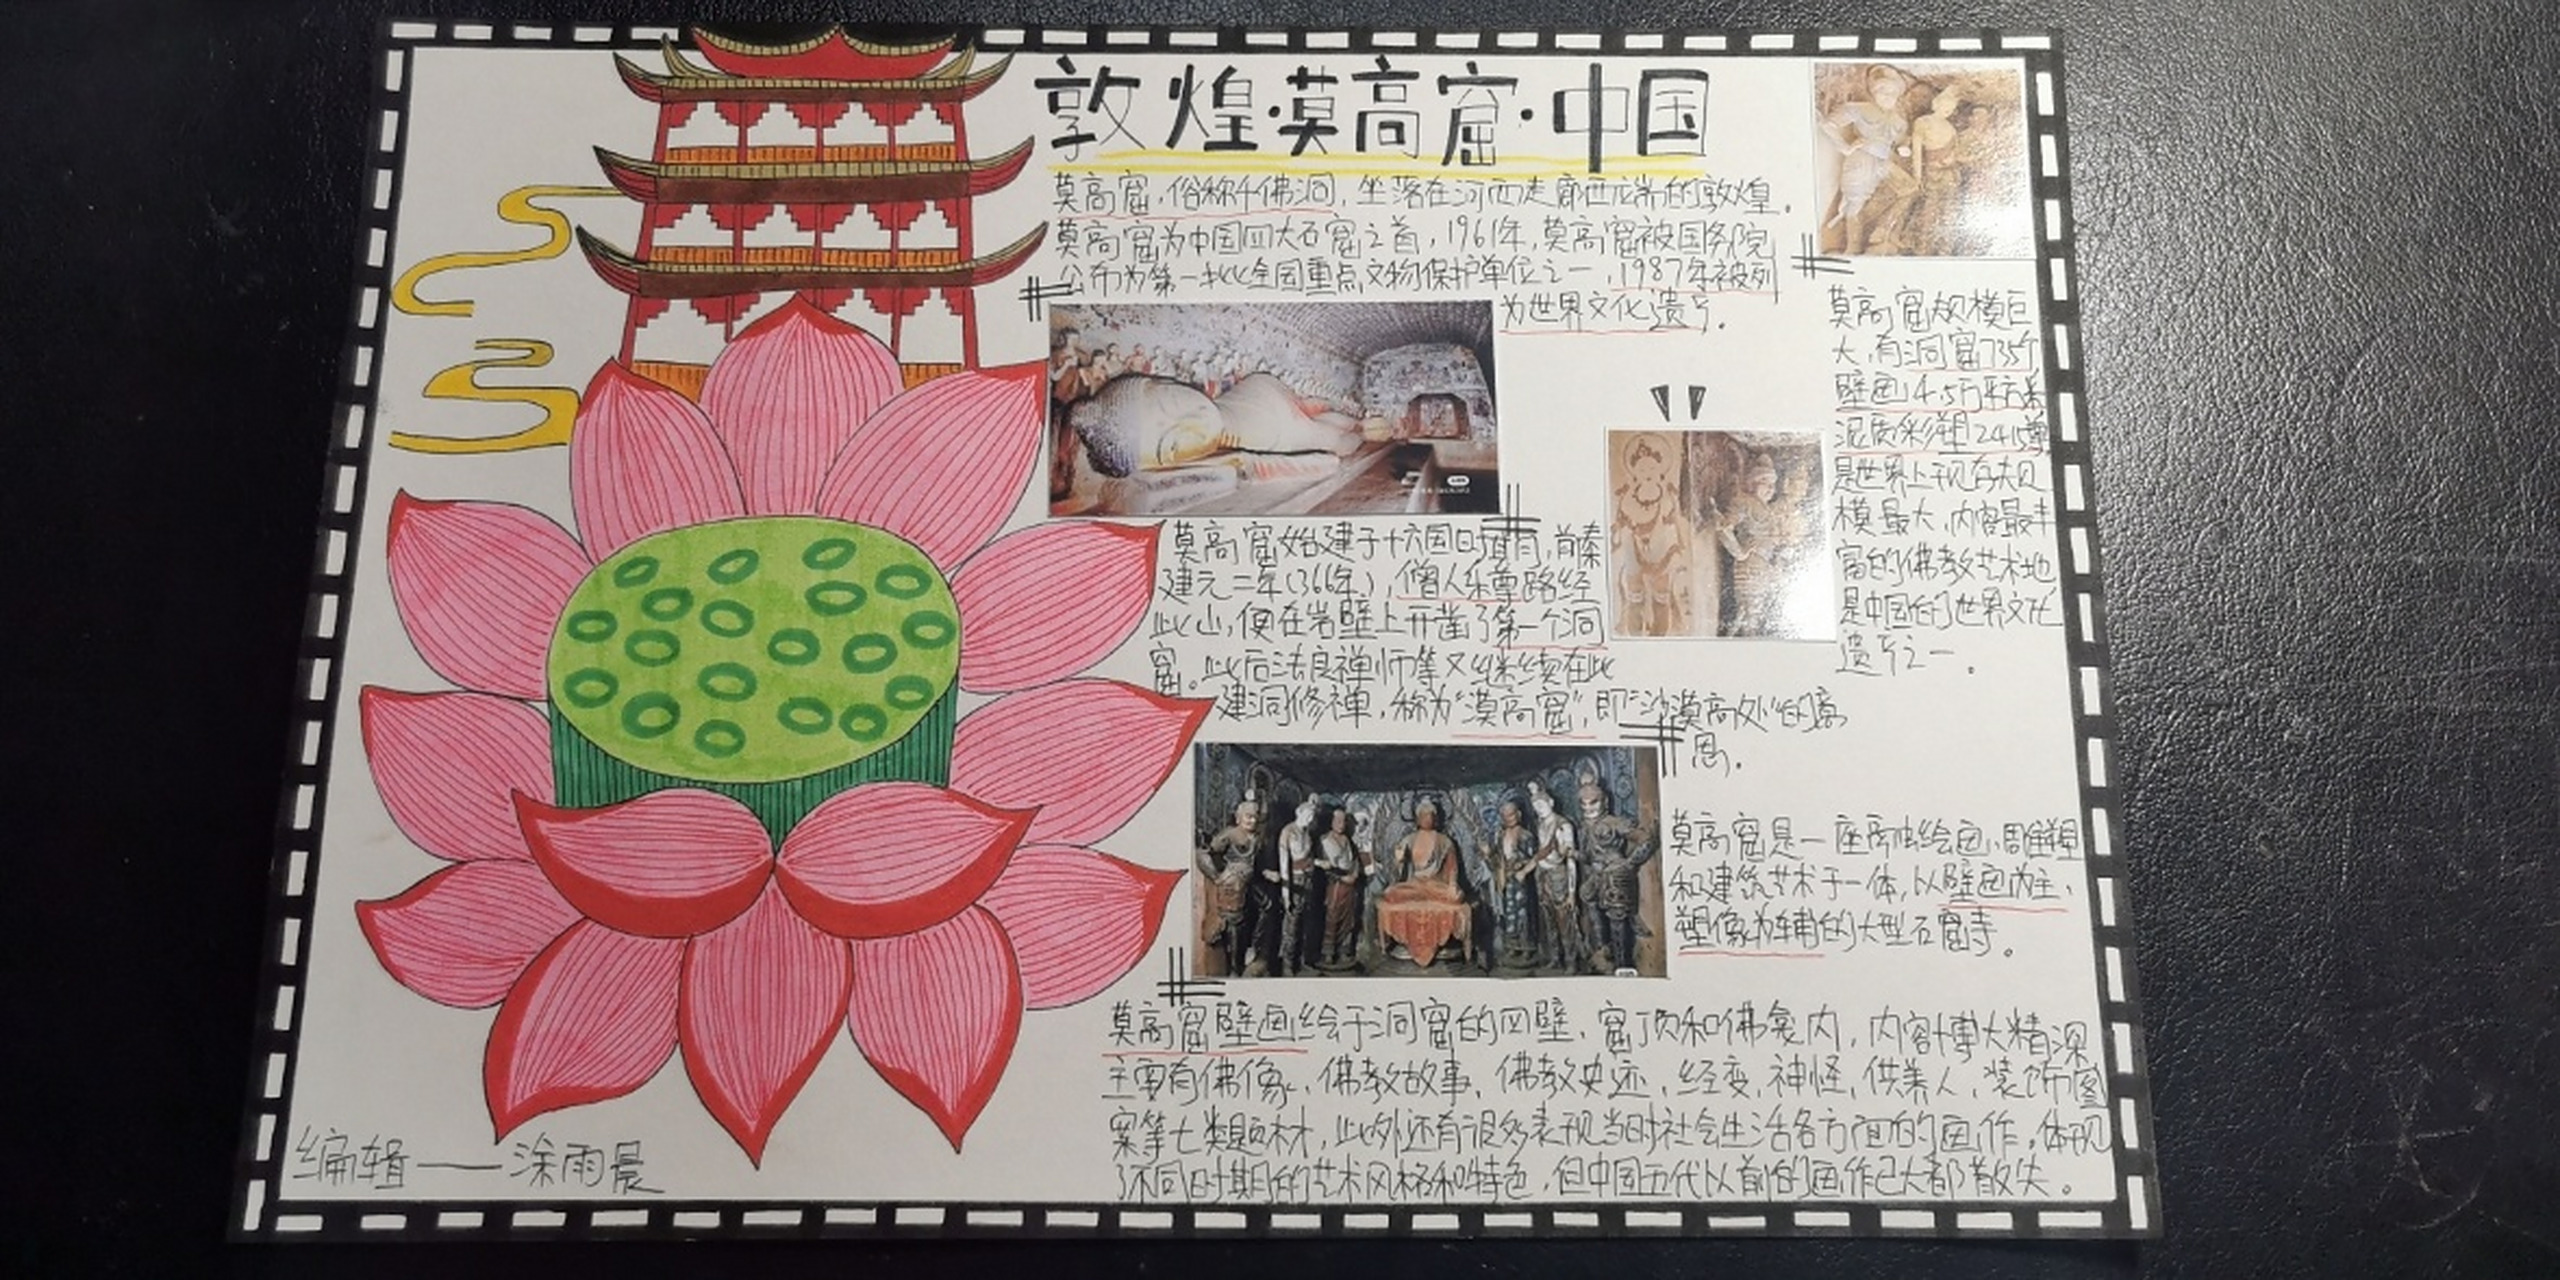 敦煌·莫高窟·中国
莫高窟,俗称千佛洞,坐落在河西走廊西端的敦煌。
莫高窟为中国四大石窟之首,1961年,莫高窟被国务院
公布为第一批全国重点文物保护单位之一,1987年被列
为世界文化遗产。
莫高窟规模巨
大,有洞窟735个
壁画4.5万平方米
泥质彩塑2415尊
是世界上现存规
模最大,内容最丰
富的佛教艺术地
是中国的世界文化
遗产之一。
莫高窟始建于十六国时期,前秦
建元二年(366年),僧人乐尊路经
此山,便在岩壁上开凿了第一个洞
窟。此后法良禅师等又继续在此
建洞修禅,称为“漠高窟”,即“沙漠高处”的意
思。
莫高窟是一座融绘画、雕塑
和建筑艺术于一体,以壁画为主、
塑像为辅的大型石窟寺。
莫高窟壁画绘于洞窟的四壁、窟顶和佛龛内,内容博大精深
主要有佛像、佛教故事、佛教史迹、经变、神怪、供养人、装饰图
案等七类题材,此外还有很多表现当时社会生活各方面的画作,体现
了不同时期的艺术风格和特色,但中国五代以前的画作已大都散失。
编辑——涂雨晨